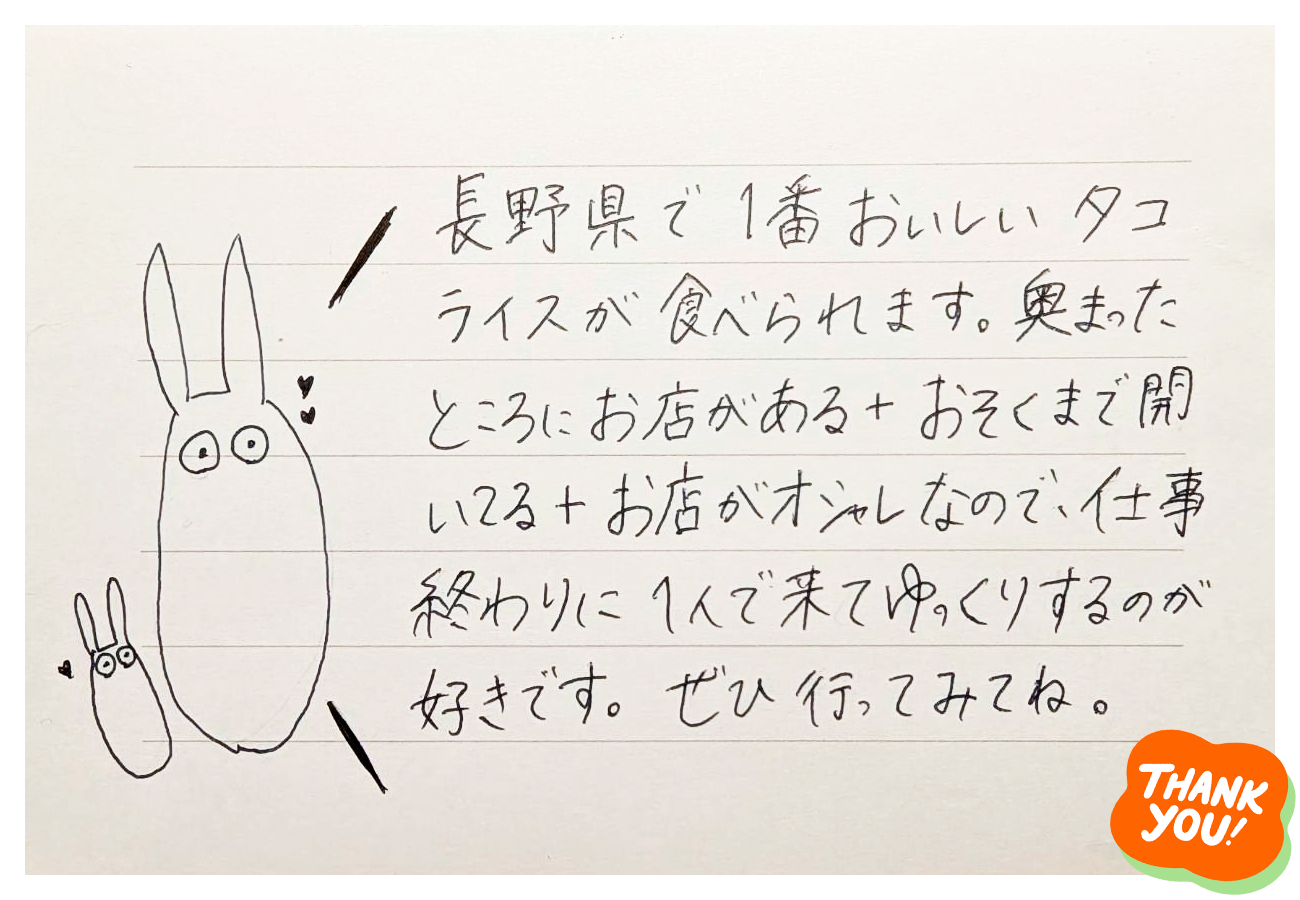 長野県で1番おいしいタコ
ライスが食べられます。奥まった
ところにお店がある+おそくまで開
いてる+お店がオシャレなので、仕事
終わりに1人で来てゆっくりするのが
好きです。ぜひ行ってみてね。
THANK
YOU!